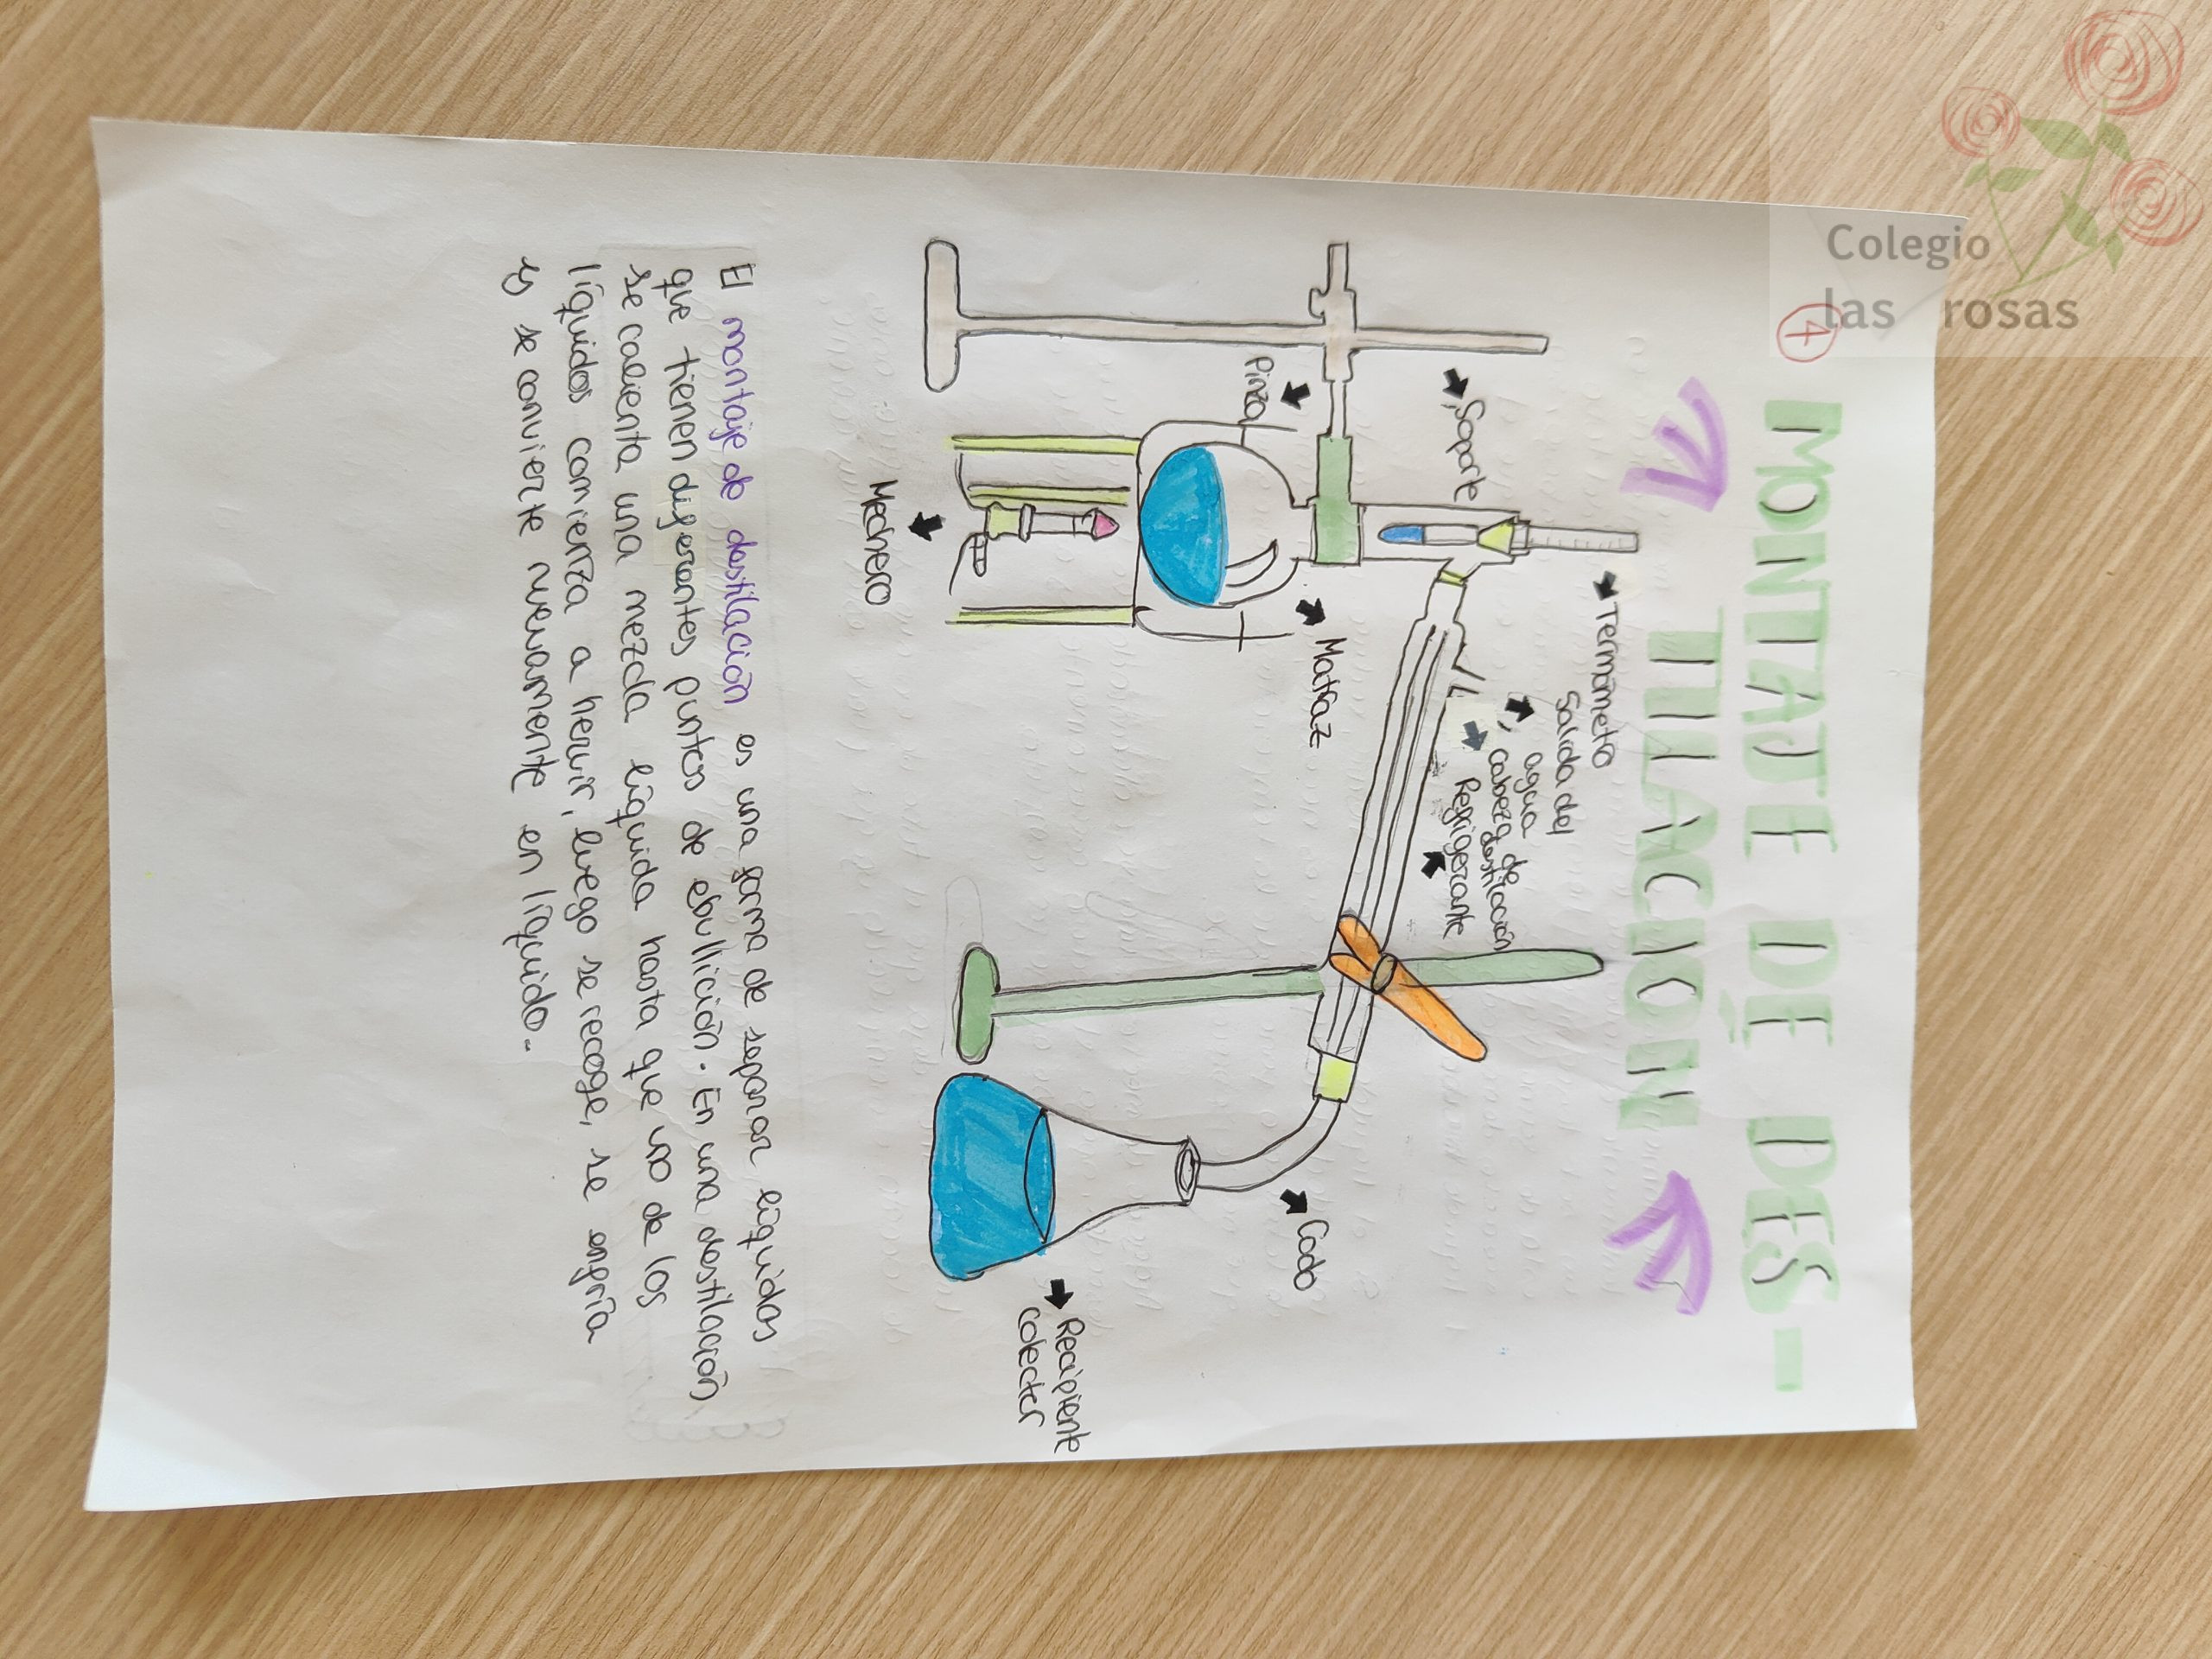 Colegio
las rosas
4
MONTAJE DE DES-
TILACION
Soporte
Termómetro
Salida del
agua
cabeza de
destilación
Refrigerante
Pinza
Matraz
Mechero
Codo
Recipiente
colector
El montaje de destilación es una forma de separar líquidos
que tienen diferentes puntos de ebullición. En una destilación
se calienta una mezcla líquida hasta que uno de los
líquidos comienza a hervir, luego se recoge, se enfría
y se convierte nuevamente en líquido.